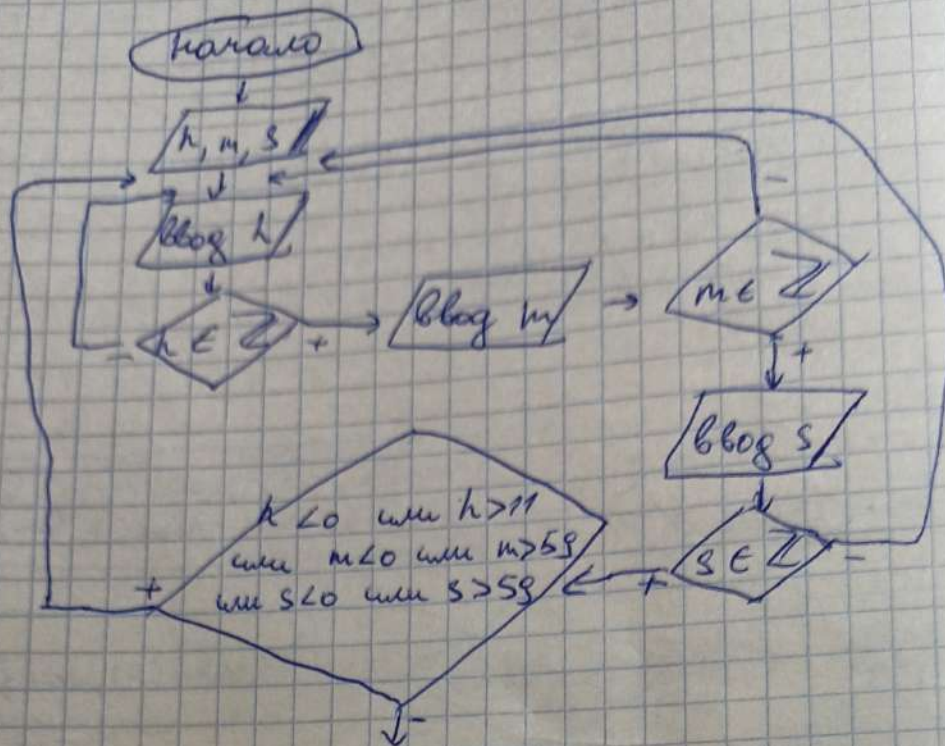 начало
h, m, s
ввод h
h ∈ ℤ
-
+
ввод m
m ∈ ℤ
-
+
ввод s
s ∈ ℤ
-
+
h <0 или h>11
или m<0 или m>59
или s<0 или s>59
+
-